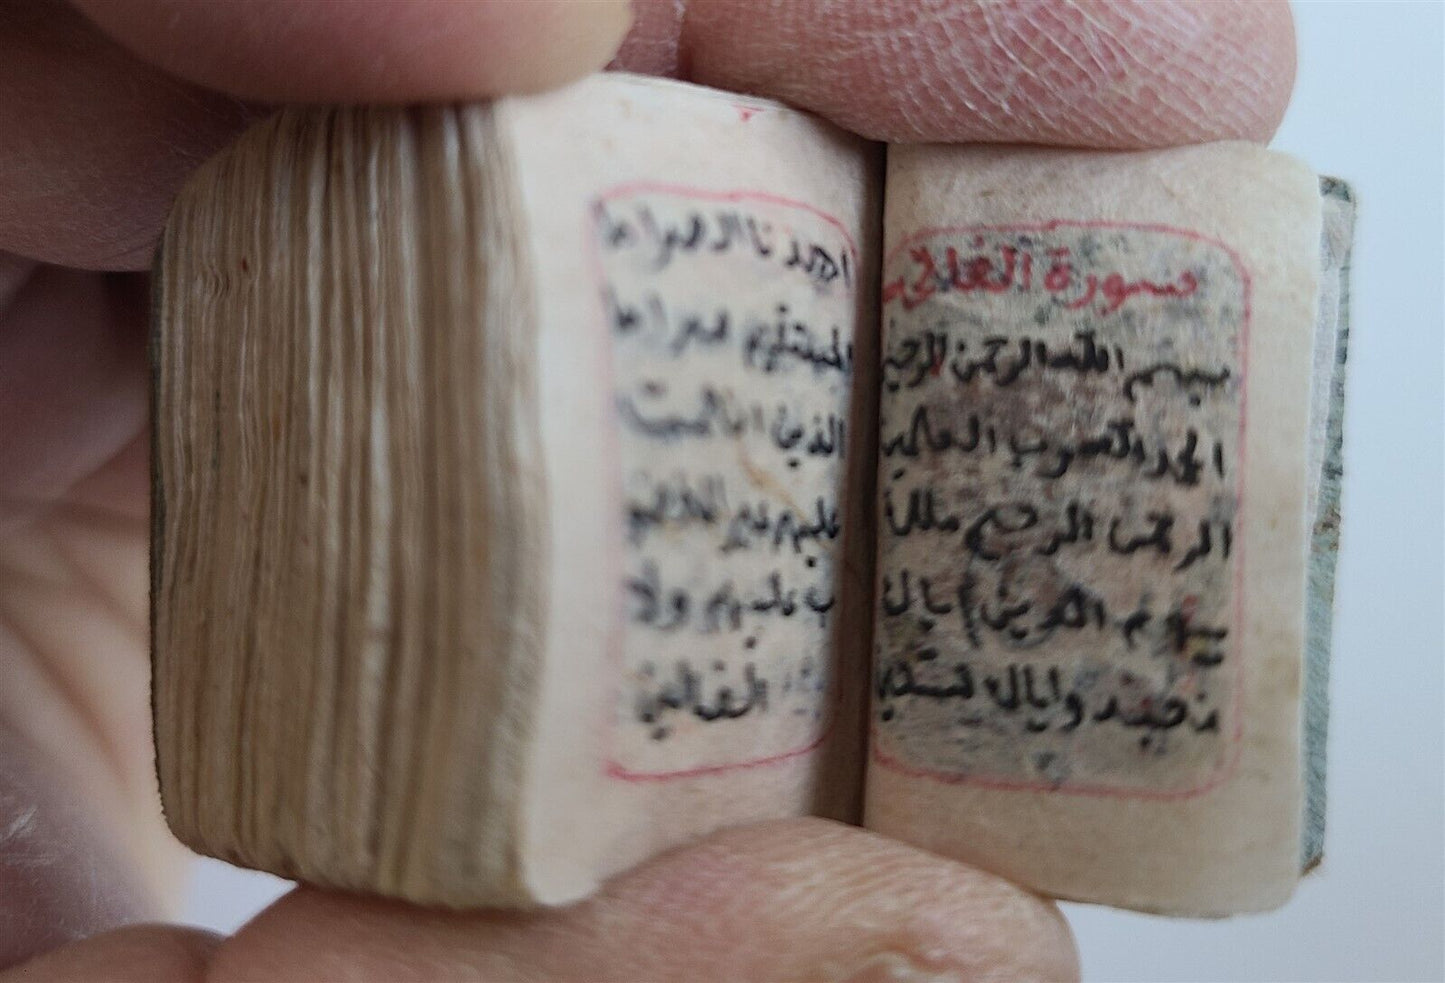 سورة
بسم الله الرحمن الرحيم
الحمد لله رب العلمين
الرحمن الرحيم ملك
يوم الدين اياك
نعبد واياك نستعين
اهدنا الصراط
المستقيم صراط
الذين انعمت
عليهم غير المغضو
ب عليهم ولا
الضالين